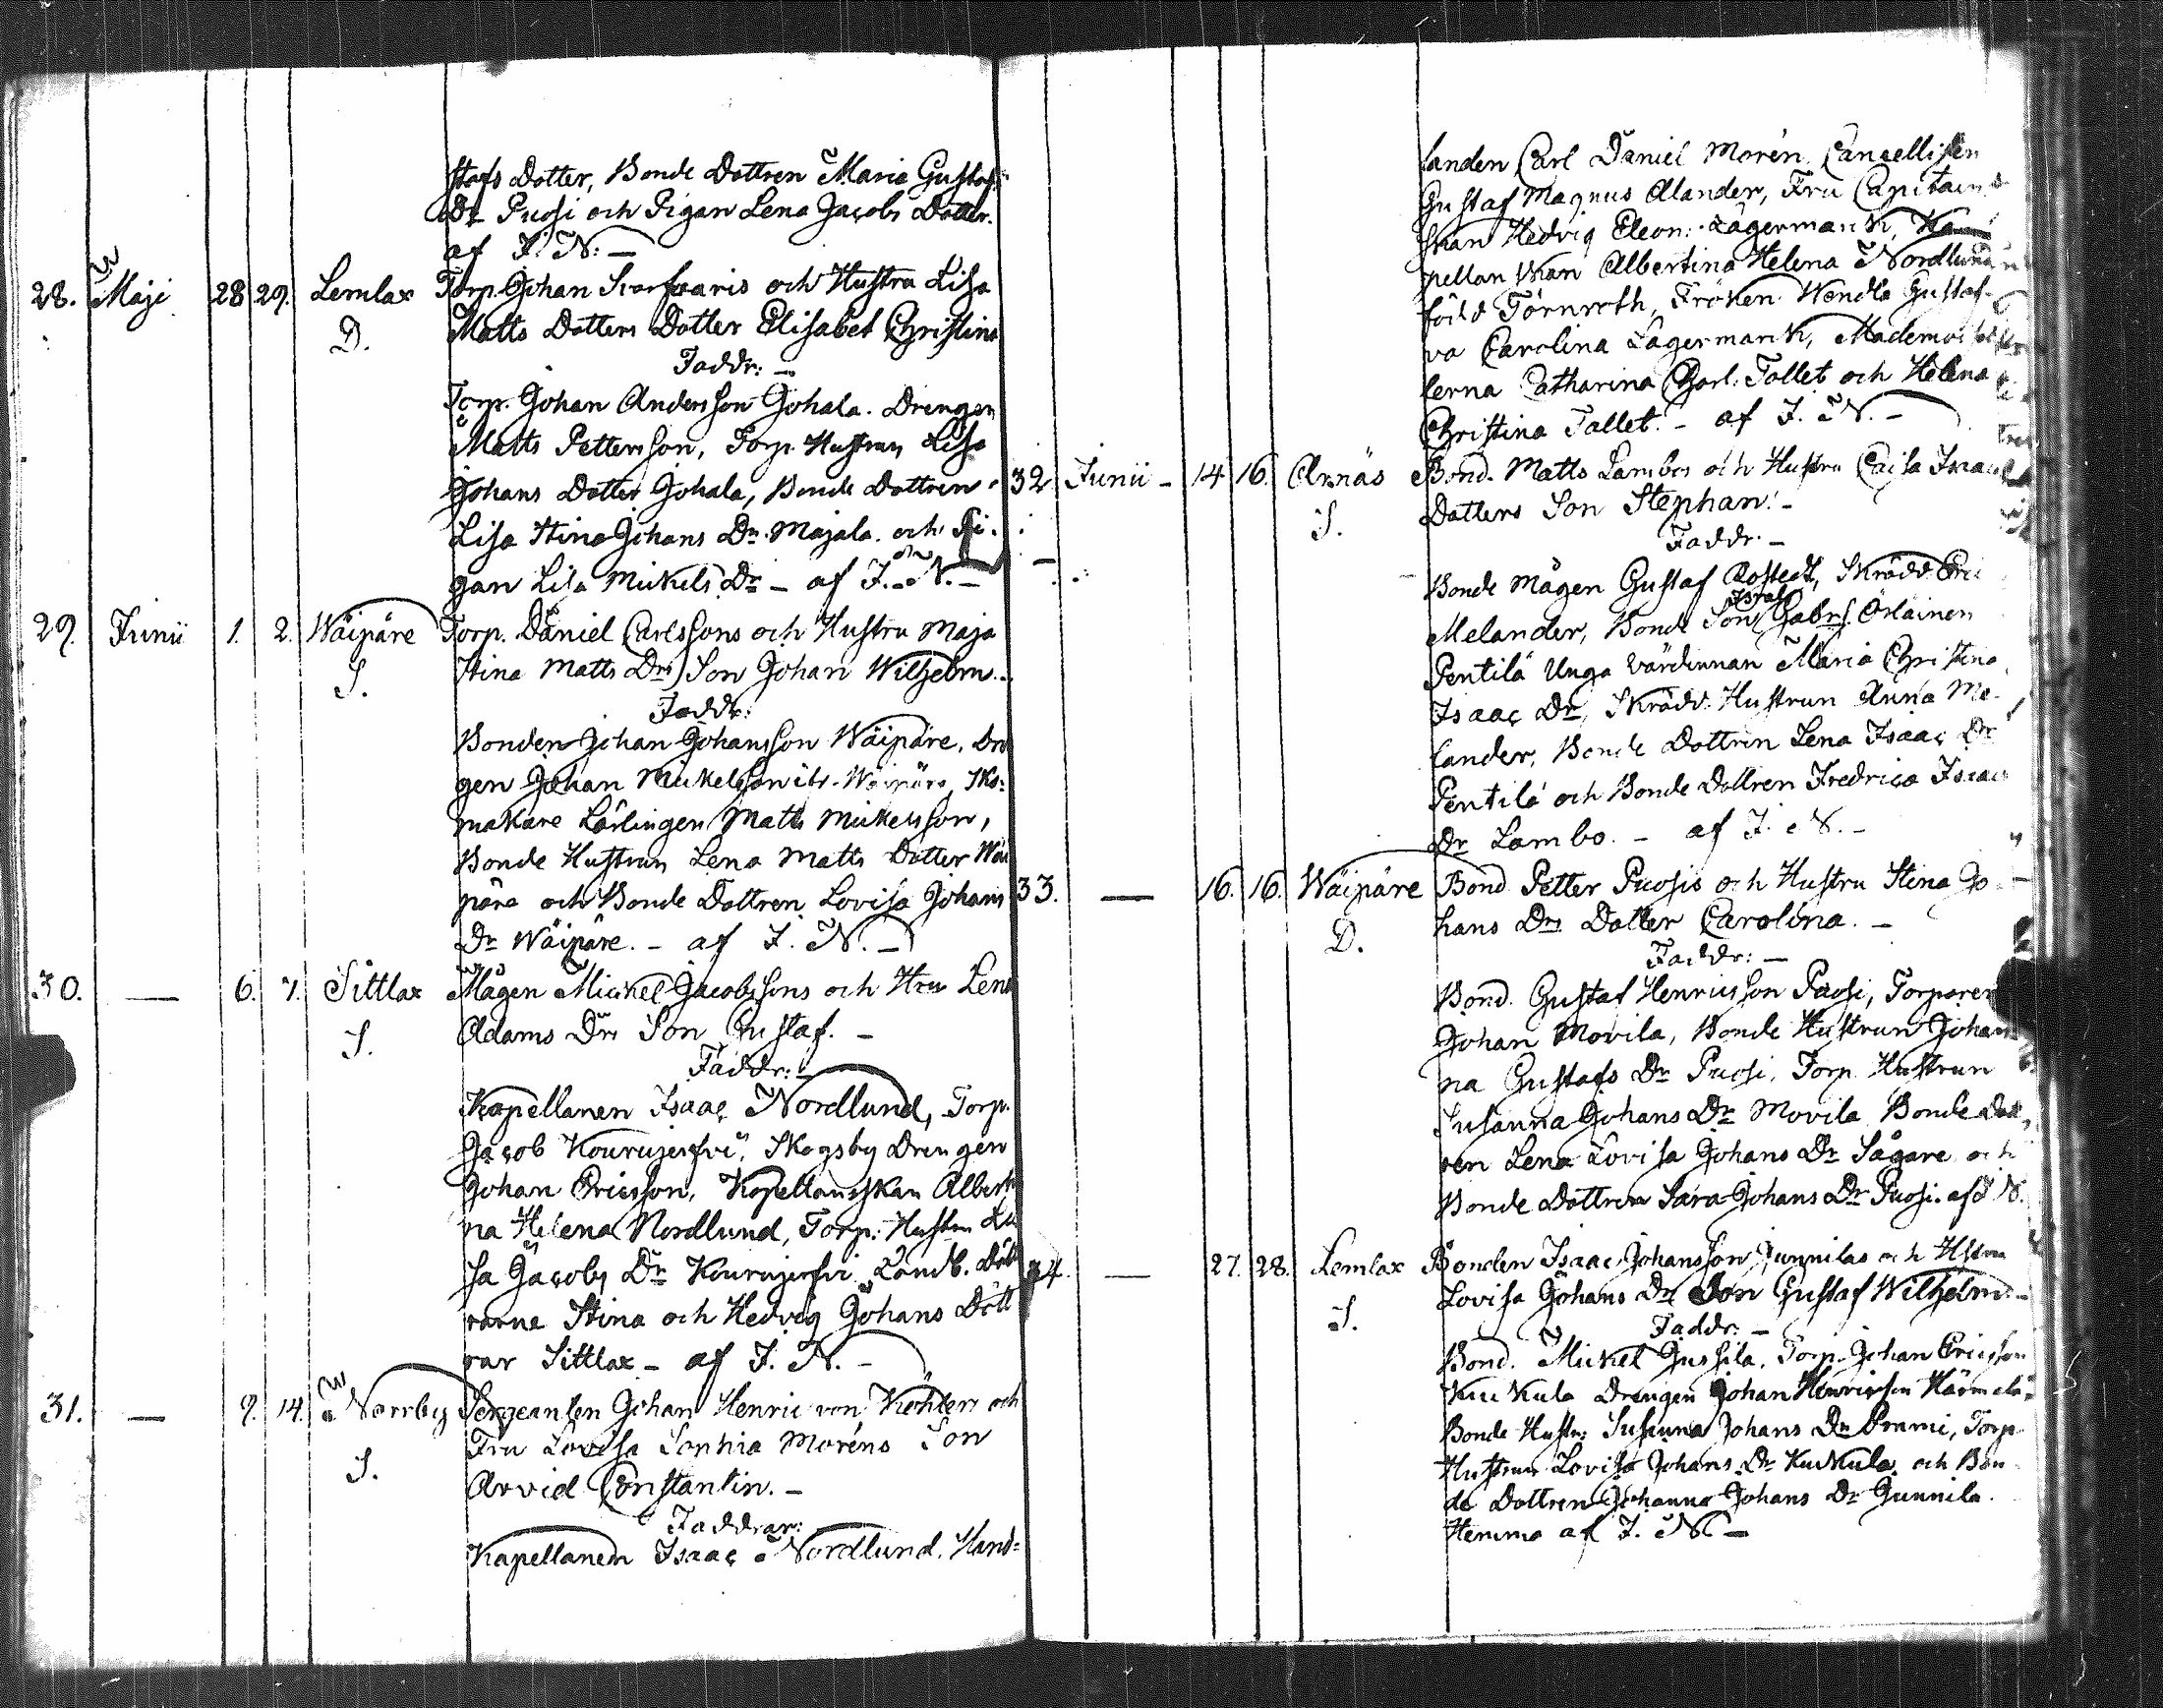 stafs Dotter, Bonde Dottren Maria Gustafs
Dr Puosi och Pigan Lena Jacobs Dotter.
af I. N: —
28. Maji 28 29. Lemlax Torp. Johan Svartfvaris och Hustru Lisa
D. Matts Dotters Dotter Elisabet Christina
Faddr: —
Torp. Johan Andersson Johala. Drengen
Matts Pettersson, Torp. Hustrun Lisa
Johans Dotter Johala, Bonde Dottren
Lisa Stina Johans Dr. Majala. och Pi-
gan Lisa Mickels Dr — af I. N. —
29. Junii 1. 2. Wäipäre Torp. Daniel Carlssons och Hustru Maja
S. Stina Matts Drs Son Johan Wilhelm.
Faddr:
Bonden Johan Johansson Wäipäre, Dr
gen Johan Mickelsson ibr. Wäipäre, Sko-
makare Lärlingen Matts Mickelsson,
Bonde Hustrun Lena Matts Dotter Wäi
päre och Bonde Dottren Lovisa Johans
Dr Wäipäre. — af I. N. —
30. — 6. 7. Sittlax Mågen Mickel Jacobssons och Hru Lena
S. Adams Drs Son Gustaf. —
Faddr: —
Kapellanen Isaac Nordlund, Torp.
Jacob Kourujerfvi, Skogsby Drengen
Johan Ericsson, Kapellanskan Alberti
na Helena Nordlund, Torp. Hustru Lu
sa Jacobs Dr Kourujerfvi Landb. Dött
rarne Stina och Hedvig Johans Dött
rar Sittlax — af I. N. —
31. — 9. 14. Norrby Sergeanten Johan Henric von Köhlers och
S. Fru Lovisa Sophia Moréns Son
Arvid Constantin. —
Faddrar:
Kapellanen Isaac Nordlund. Hand-
landen Carl Daniel Morén Cancellisten
Gustaf Magnus Alander, Fru Capitains
skan Hedvig Eleon: Lagermarck, Ka
pellanskan Albertina Helena Nordlund
född Törnroth, Fröken Wendla Gustaf-
va Carolina Lagermarck, Mademoisel
lerna Catharina Charl. Tallet och Helena
Christina Tallet. — af I. N. —
32. Junii — 14 16. Arnäs Bond. Matts Lambos och Hustru Caisa Isaacs
S. Dotters Son Stephan. —
Faddr. —
Bonde Mågen Gustaf Rostedt, Skrädd. Eric
Melander, Bonde Son Gabr. Israels Örlainen
Pentilä Unga Värdinnan Maria Christina
Isaac Dr, Skrädd. Hustrun Anna Me-
lander, Bonde Dottren Lena Isaac Dr
Pentilä och Bonde Dottren Fredrica Isaac
Dr Lambo. — af I. N. —
33. — 16. 16. Wäipäre Bond. Petter Puosis och Hustru Stina Jo
D. hans Drs Dotter Carolina. —
Faddr: —
Bond. Gustaf Henricsson Puosi, Torparen
Johan Movila, Bonde Hustrun Johan
na Gustafs Dr Puosi, Torp Hustrun
Susanna Johans Dr Movila Bonde Dott
ren Lena Lovisa Johans Dr Sågare och
Bonde Dottren Sara Johans Dr Puosi. af I. N.
34. — 27. 28. Lemlax Bonden Isaac Johansson Junnilas och Hstru
S. Lovisa Johans Drs Son Gustaf Wilhelm. —
Faddr: —
Bond. Mickel Jussila, Torp. Johan Ericsson
Kuckula Drengen Johan Henricsson Härmälä
Bonde Hustr: Susanna Johans Dr Prami, Torp
Hustrun Lovisa Johans Dr Kuckula och Bon
de Dottren Johanna Johans Dr Junnila.
Hemma af I. N. —